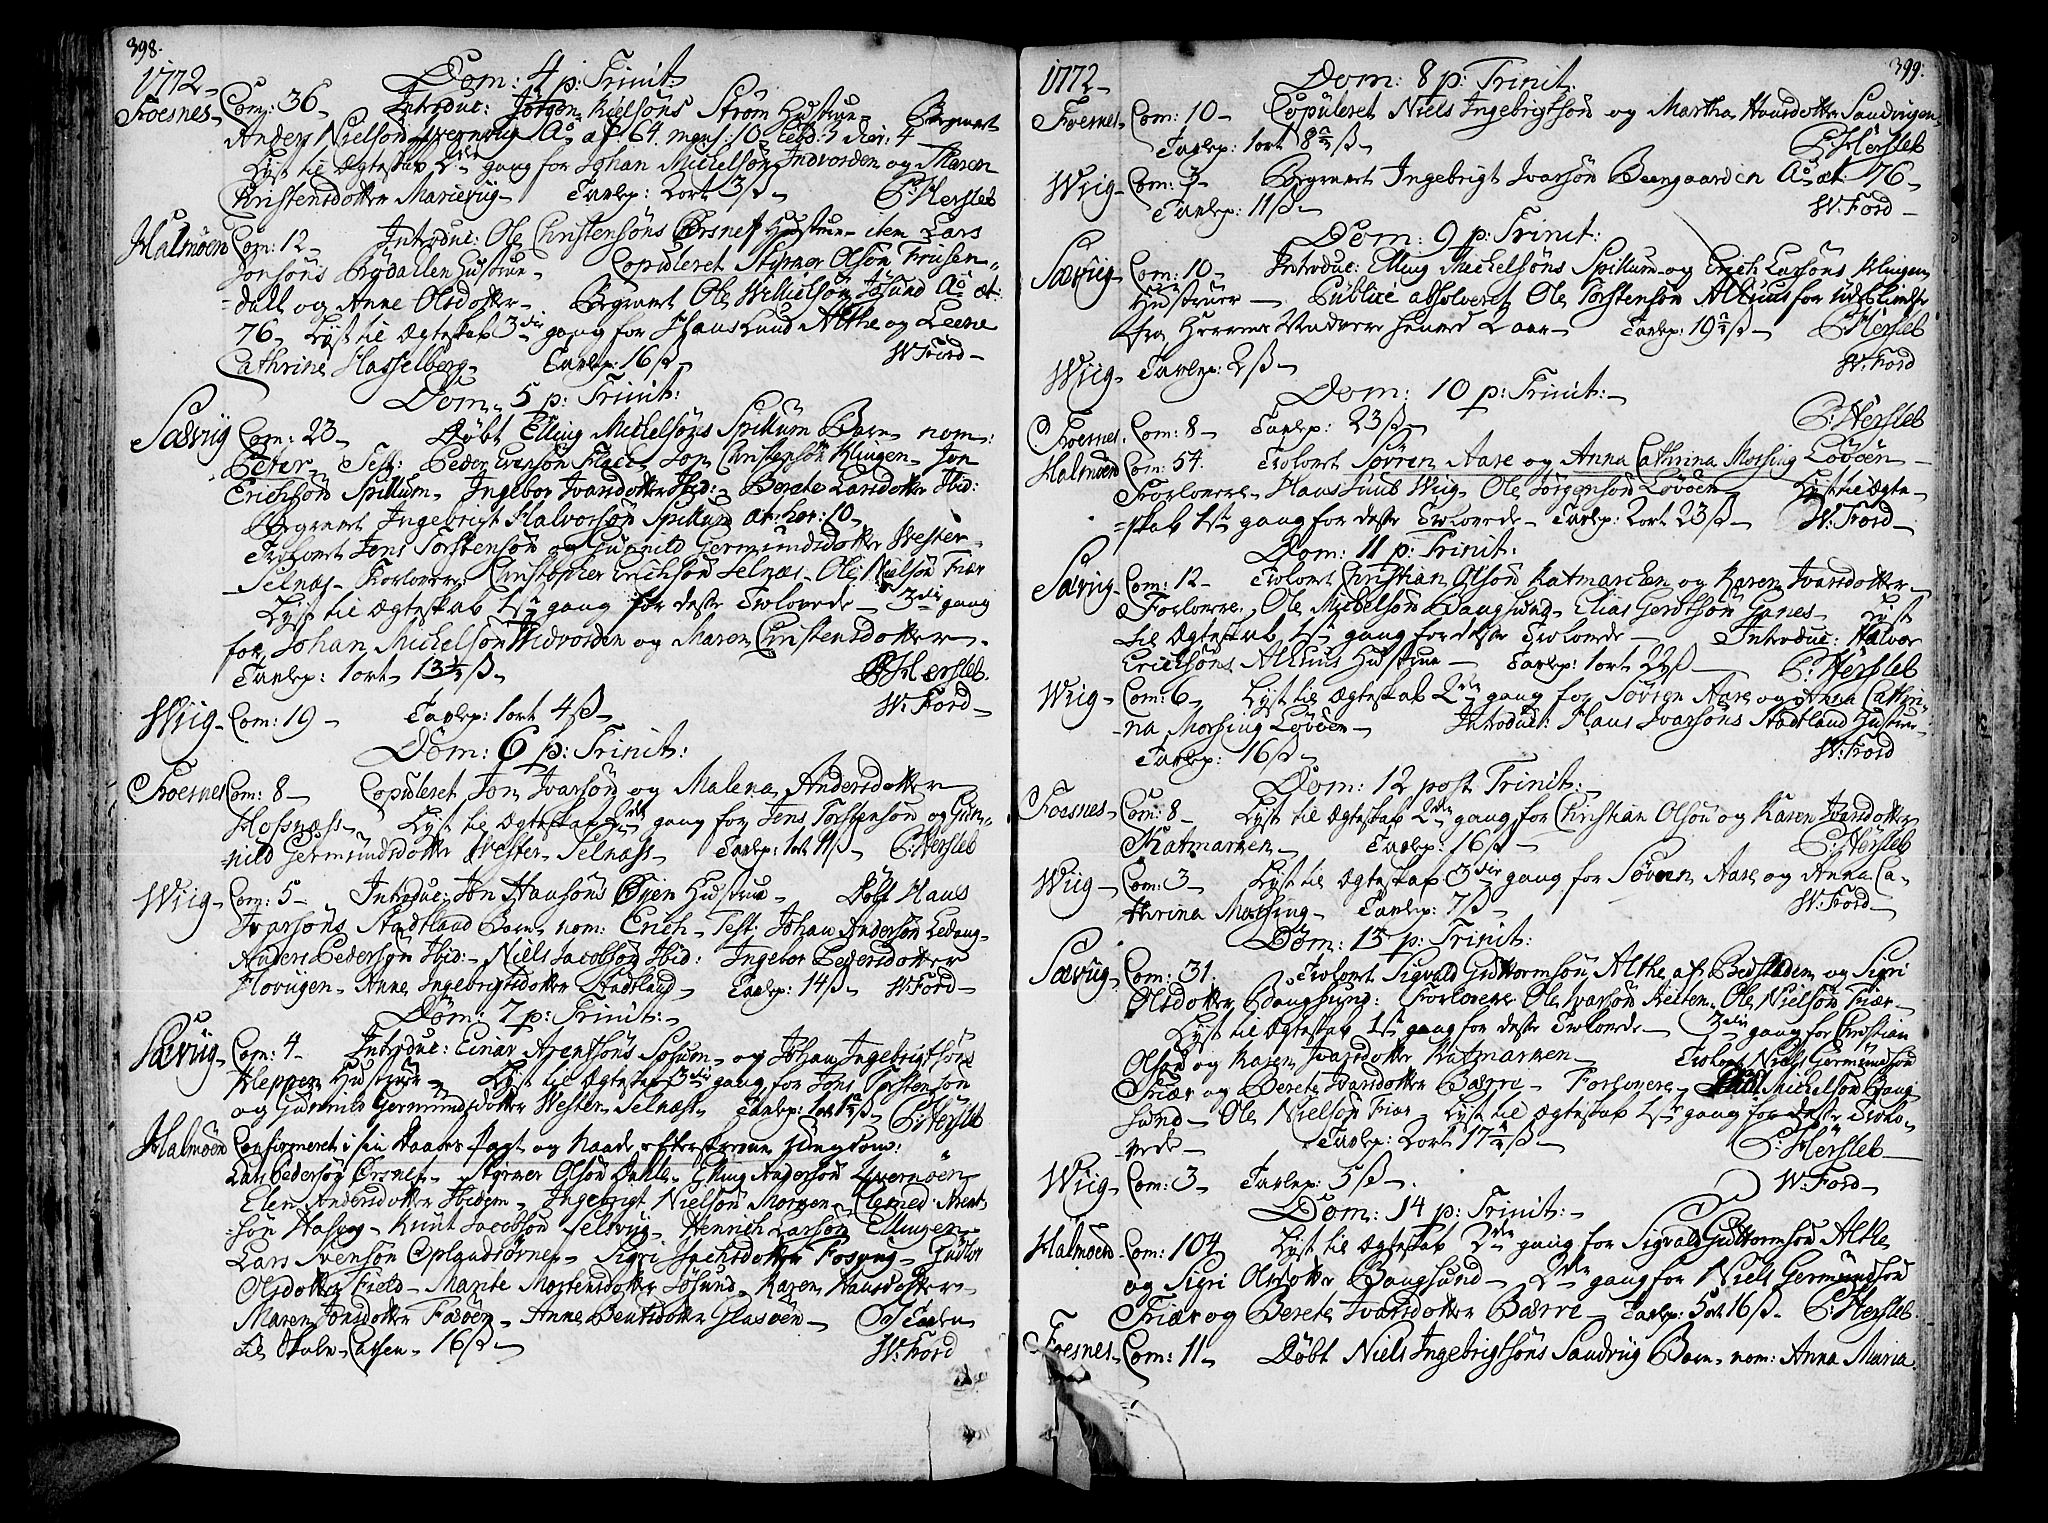 398.
1772 - Dom: 4 p: Trinit:
Foesnes - Com: 36 - Introduc: Jörgen Nielsöns Ström Hustrue - Begravet
Anders Nielsön Ao æt 64. mens: 10.
Lyst til Ægteskab 2den gang for Johan Michelsön Indvorden og Maren
Christensdotter Marievüg - Tavlep: 2 ort 3 ß - P: Hersleb
Halmöen Com: 12 - Introduc: Ole Christensöns Örsnes Hustrue - item Lars
Jonsöns Brydallen Hustrue - Copuleret Styrmer Olsön Friisen-
=dall og Anne Olsdotter - Begravet Ole Willielsön Jösund Ao æt:
76 - Lyst til Ægteskab 3die gang for Hans Lund Althe og Leene
Cathrine Hasselberg - Tavlep: 16 ß - W: Ford -
Dom: 5 p: Trinit:
Sævüg Com: 23 - Döbt Elling Michelsöns Spillum Barn - nom:
Peter - Test: Peder Evensön Flack - Jon Christensön Klingen - Jon
Erichsön Spillum - Ingebor Ivarsdotter Ibid: - Berete Larsdotter Ibid:
Begravet Ingebrigt Halvorsön Spillum æt: hor: 10 -
Trolovet Jens Torstensön og Gunnild Germundsdotter Wester-
Selnæs - Forlovere Christopher Erichsön Selnæs - Ole Nielsön Fiær
Lyst til Ægteskab 1ste gang for disse Trolovede - 3die gang
for Johan Michelsön Widvorden og Maren Christensdotter -
Tavlep: 1 ort 13½ ß - P: Hersleb.
Wiig - Com: 19 - Tavlep: 1 ort 4 ß - W: Ford -
Dom: 6 p: Trinit:
Foesnes Com: 8 - Copuleret Jon Ivarsön og Malena Andersdotter
Hofsnæss - Lyst til Ægteskab 2den gang for Jens Torstensön og Gun-
nild Germundsdotter Wester Selnæss - Tavlep: 1 ort 11 ß - P: Hersleb
Wiig - Com: 5 - Introduc: Jon Hansöns Öyen Hustrue - Döbt Hans
Ivarsöns Stadtland Barn - nom: Erich - Test: Johan Andersön Ledang -
Anders Pedersön Ibid: - Niels Jacobsön Ibid: Ingebor Pedersdotter
Hovügen - Anne Ingebrigtsdotter Stadtland - Tavlep: 14 ß - W: Ford -
Dom: 7 p: Trinit: -
Sævüg - Com: 4 - Introduc: Einar Arentsöns Spillum - og Johan Ingebrigtsöns
Kleppen Hustruer - Lyst til Ægteskab 3die gang for Jens Torstensön
og Gunnild Germundsdotter Wester Selnæss - Tavlep: 1 ort ß - P: Hersleb
Halmöen Confirmeret i sin Daabes Pagt og Naade efterskrevne Ungdom:
Lars Pedersön Örsnes - Styrmer Olsön Dahle - Elling Andersön
Elen Andersdotter Ibidem - Ingebrigt Nielsön - Clemed Arent-
=sön - Knut Jacobsön Seltvüg - Henrich Larsön Ellingen -
Lars Svensön - Sigri - Gurtlor
Olsdotter Field - Marite Mortensdotter Jösund - Karen Hansdotter -
Maren Jonsdotter Fasöen - Anne Bentsdotter Glasöen - Og Tavlen
til Skole-Cassen - 16 ß - W: Ford
399.
1772 - Dom: 8 p: Trinit:
Foesnes - Com: 10 - Copuleret Niels Ingebrigtsön og Martha Sandvigen -
Tavlep: 1 ort 8½ ß - P: Hersleb
Wiig - Com: 3 - Begravet Ingebrigt Ivarsön Beengaarden Ao æt: 76 -
Tavlep: 11 ß - W: Ford -
Dom: 9 p: Trinit:
Sævüg - Com: 10 - Introduc: Elling Michelsöns Spillum - og Erich Larsöns Klingen
Hustruer - Publicè absolveret Ole Torstensön Alhuus for Udeblivelse
fra Herrens Nadvere henved 2 aar - Tavlep: 19½ ß - P: Hersleb
Wiig - Tavlep: 2 ß - W: Ford
Dom: 10 p: Trinit: -
Foesnes. Com: 8 - Tavlep: 23 ß - P: Hersleb
Halmöen Com: 54. Trolovet Sörren Aare og Anna Cathrina Morsing Lövöen -
Forlovere - Hans Wiig - Ole Jörgensön Lövöen - Lyst til Ægte-
=skab 1ste gang for disse Trolovede - Tavlep: 2 ort 23 ß - W: Ford -
Dom: 11 p: Trinit:
Sævüg - Com: 12 - Trolovet Christian Olsön Katmarchen og Karen Ivarsdotter -
Forlovere. Ole Michelsön Bangsund - Elias Gerdtsön Ganes - Lyst
til Ægteskab 1ste gang for disse Trolovede - Introduc: Halvor
Erichsöns Alhuus Hustrue - Tavlep: 1 ort 22 ß - P: Hersleb
Wiig - Com: 6 - Lyst til Ægteskab 2den gang for Sörren Aare og Anna Cathri-
na Morsing Lövöen - Introduc: Hans Ivarsöns Stadtland Hustrue -
Tavlep: 16 ß - W: Ford
Dom: 12 post Trinit: -
Foesnes - Com: 8 - Lyst til Ægteskab 2den gang for Christian Olsön og Karen Ivarsdotter
Katmarken - Tavlep: 16 ß - P: Hersleb
Wiig - Com: 3 - Lyst til Ægteskab 3die gang for Sörren Aare og Anna Ca-
thrina Morsing - Tavlep: 7 ß - W: Ford -
Dom: 13 p: Trinit:
Sævüg - Com: 31. Trolovet Sigvald Guttormsön Althe af Bedstaden og Sigri
Olsdotter Bangsund: Forlovere Ole Ivarsön - Ole Nielsön Fiær -
Lyst til Ægteskab 1ste gang for disse Trolovede - 3die gang for Christian
Olsön og Karen Ivarsdotter Katmarken - Trolovet Niels Germundsön
Fiær og Berete Ivarsdotter Bærre - Forlovere - Michelsön Bang-
sund - Ole Nielsön Fiær - Lyst til Ægteskab 1ste gang for disse Trolo-
vede - Tavlep: 2 ort 17½ ß - P: Hersleb -
Wiig - Com: 3 - Tavlep: 5 ß - W: Ford -
Dom: 14 p: Trinit: -
Halmöen Com: 104 Lyst til Ægteskab 2den gang for Sigvald Guttormsön Althe
og Sigri Olsdotter Bangsund - 2den gang for Niels Germundsön
Fiær og Berete Ivarsdotter Bærre - Tavlep: 5 ort 16 ß - P: Hersleb
Foesnes - Com: 11 - Döbt Niels Ingebrigtsöns Sandvüg Barn - nom: Anna Maria.